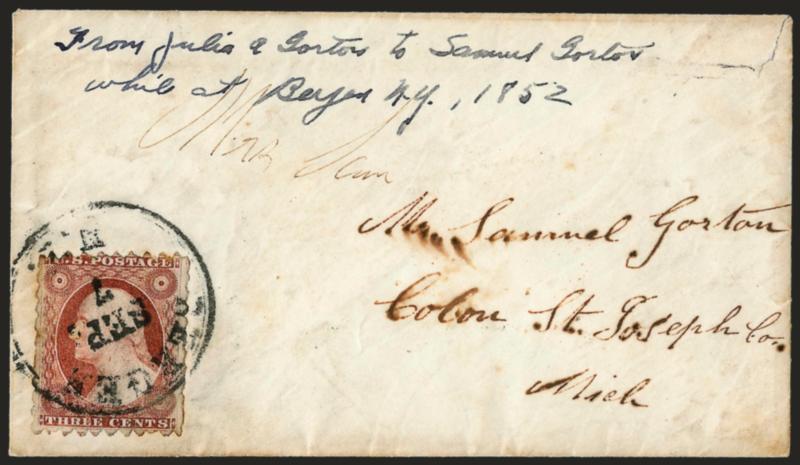 From Julia A Gorton to Samuel Gorton
while at Bergen N.Y., 1852
Miss
Mr. Samuel Gorton
Colon St. Joseph Co.
Mich
U.S. POSTAGE
7
SEP
THREE CENTS